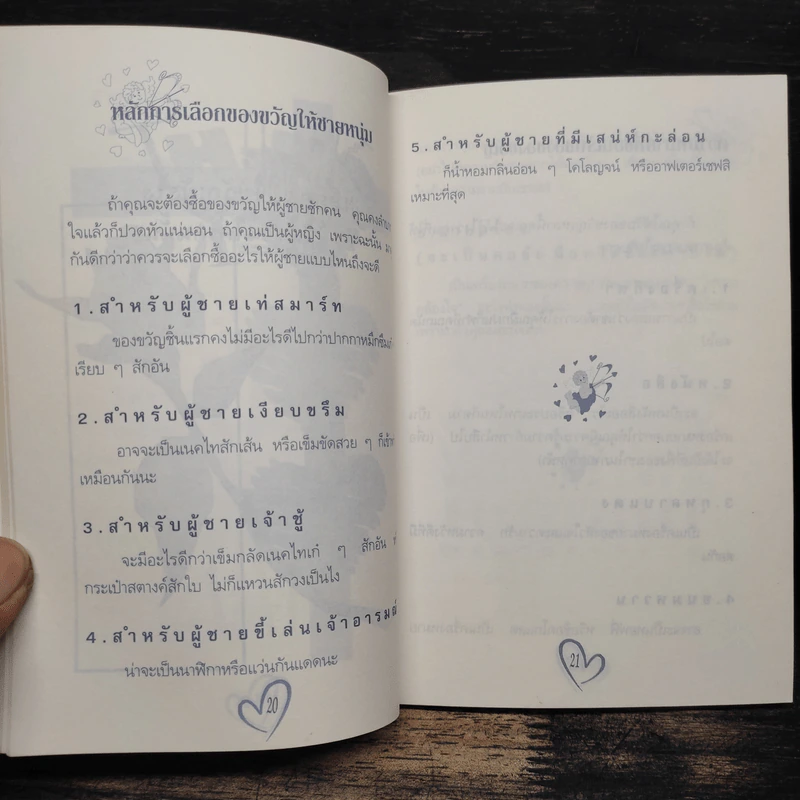 หลักการเลือกของขวัญให้ชายหนุ่ม
ถ้าคุณจะต้องซื้อของขวัญให้ผู้ชายซักคน คุณคงลำบาก
ใจแล้วก็ปวดหัวแน่นอน ถ้าคุณเป็นผู้หญิง เพราะฉะนั้น มา
กันดีกว่าว่าควรจะเลือกซื้ออะไรให้ผู้ชายแบบไหนถึงจะดี
1.สำหรับผู้ชายเท่สมาร์ท
ของขวัญชิ้นแรกคงไม่มีอะไรดีไปกว่าปากกาหมึกซึม
เรียบ ๆ สักอัน
2.สำหรับผู้ชายเงียบขรึม
อาจจะเป็นเนคไทสักเส้น หรือเข็มขัดสวย ๆ ก็เข้า
เหมือนกันนะ
3.สำหรับผู้ชายเจ้าชู้
จะมีอะไรดีกว่าเข็มกลัดเนคไทเก๋ ๆ สักอัน
กระเป๋าสตางค์สักใบ ไม่ก็แหวนสักวงเป็นไง
4.สำหรับผู้ชายขี้เล่นเจ้าอารมณ์
น่าจะเป็นนาฬิกาหรือแว่นกันแดดนะ
20
5.สำหรับผู้ชายที่มีเสน่ห์กะล่อน
ก็น้ำหอมกลิ่นอ่อน ๆ โคโลญจน์ หรืออาฟเตอร์เชฟสิ
เหมาะที่สุด
21